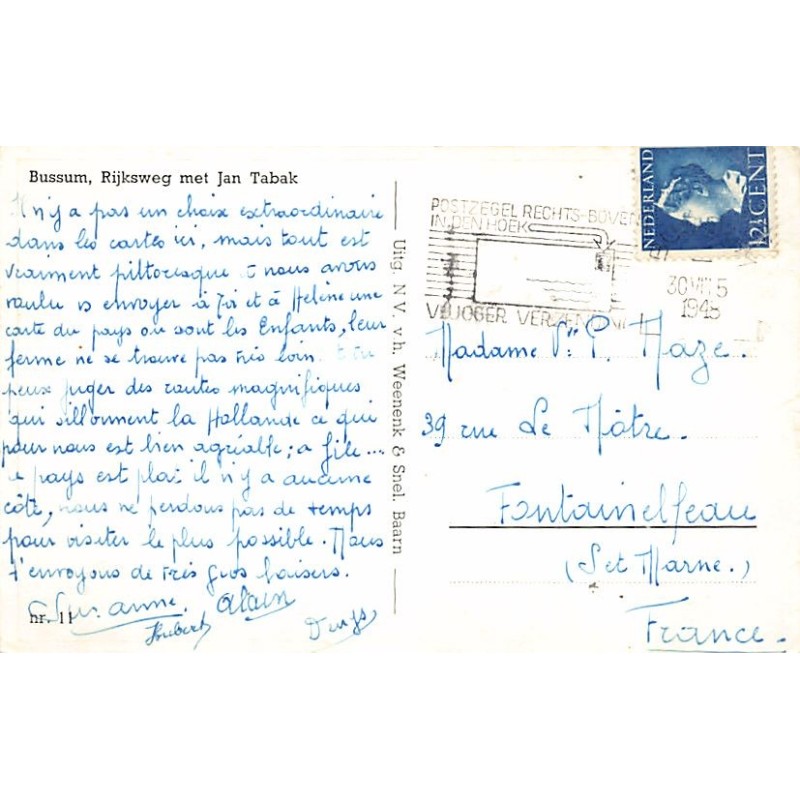 Bussum, Rijksweg met Jan Tabak
Il n'y a pas un choix extraordinaire
dans les cartes ici, mais tout est
vraiment pittoresque et nous avons
voulu vs envoyer à Toi et à Hélène une
carte du pays où sont les Enfants, leur
ferme ne se trouve pas très loin. Tu
peux juger des routes magnifiques
qui sillonnent la Hollande ce qui
pour nous est bien agréable ; ça file...
le pays est plat il n'y a aucune
côte, nous ne perdons pas de temps
pour visiter le plus possible. Nous
t'envoyons de très gros baisers.
Suzanne. Alain
Hubert
nr. 11
Uitg. N.V. v.h. Weenenk & Snel. Baarn
POSTZEGEL RECHTS-BOVEN
IN DEN HOEK
VLUGGER VERZENDING
30 VII 5
1948
NEDERLAND
12½ CENT
Madame Vve P. Maze.
39 rue Le Nôtre.
Fontainebleau
(S et Marne.)
France.